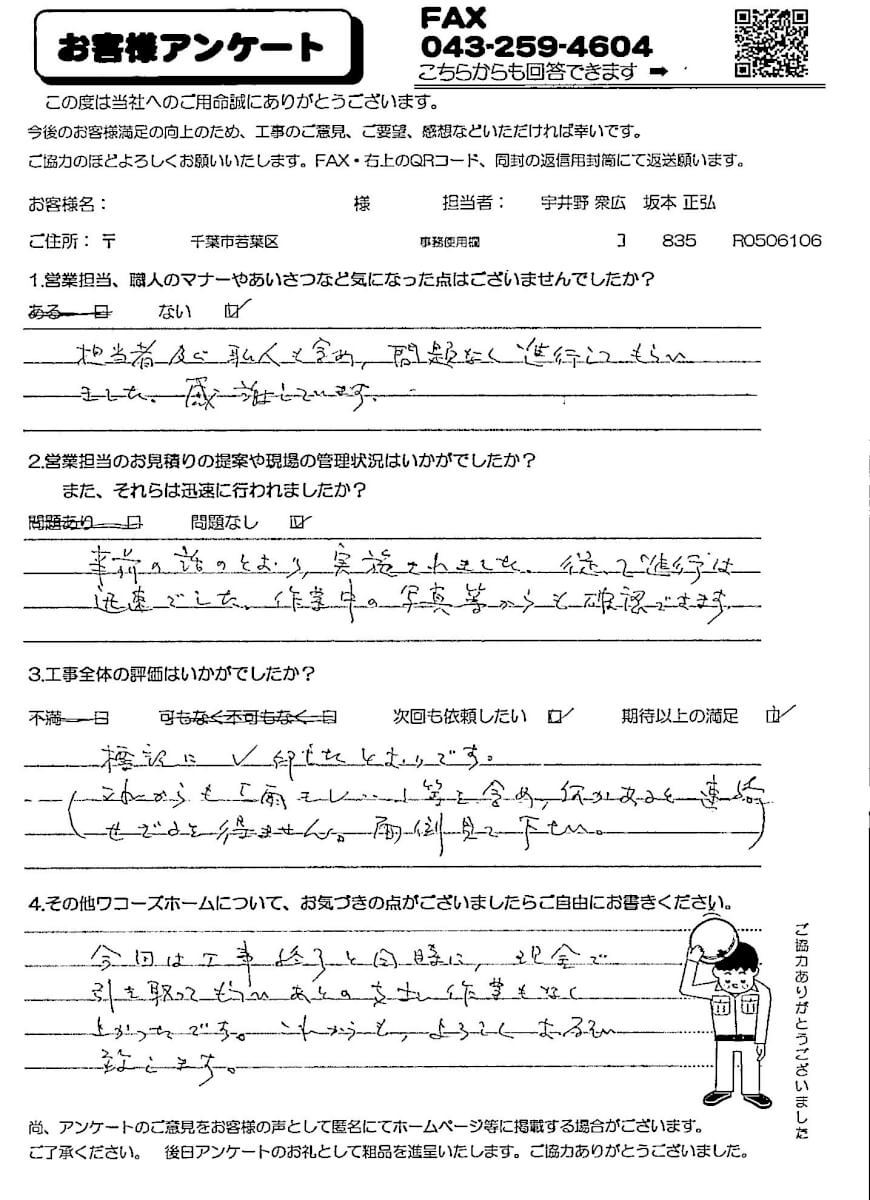 お客様アンケート
FAX
043-259-4604
こちらからも回答できます ➡
この度は当社へのご用命誠にありがとうございます。
今後のお客様満足の向上のため、工事のご意見、ご要望、感想などいただければ幸いです。
ご協力のほどよろしくお願いいたします。FAX・右上のQRコード、同封の返信用封筒にて返送願います。
お客様名： 様 担当者： 宇井野 衆広 坂本 正弘
ご住所：〒 千葉市若葉区 事務使用欄 コ 835 R0506106
1.営業担当、職人のマナーやあいさつなど気になった点はございませんでしたか？
ある □ ない ☑
担当者及び職人も含め、問題なく進行してもらい
ました。感謝しています。
2.営業担当のお見積りの提案や現場の管理状況はいかがでしたか？
また、それらは迅速に行われましたか？
問題あり □ 問題なし ☑
事前の話のとおり、実施されました。従って進行は
迅速でした。作業中の写真等からも確認できます。
3.工事全体の評価はいかがでしたか？
不満 □ 可もなく不可もなく □ 次回も依頼したい ☑ 期待以上の満足 ☑
標記に✓印せたとおりです。
(これからも「雨モレ…」等を含め、何かあると連絡
せざるを得ません。面倒見て下さい。)
4.その他ワコーズホームについて、お気づきの点がございましたらご自由にお書きください。
今回は工事終了と同時に、現金で
引き取ってもらいあとの支出し作業もなく
よかったです。これからも、よろしくお願い
致します。
ご協力ありがとうございました
尚、アンケートのご意見をお客様の声として匿名にてホームページ等に掲載する場合がございます。
ご了承ください。 後日アンケートのお礼として粗品を進呈いたします。ご協力ありがとうございました。